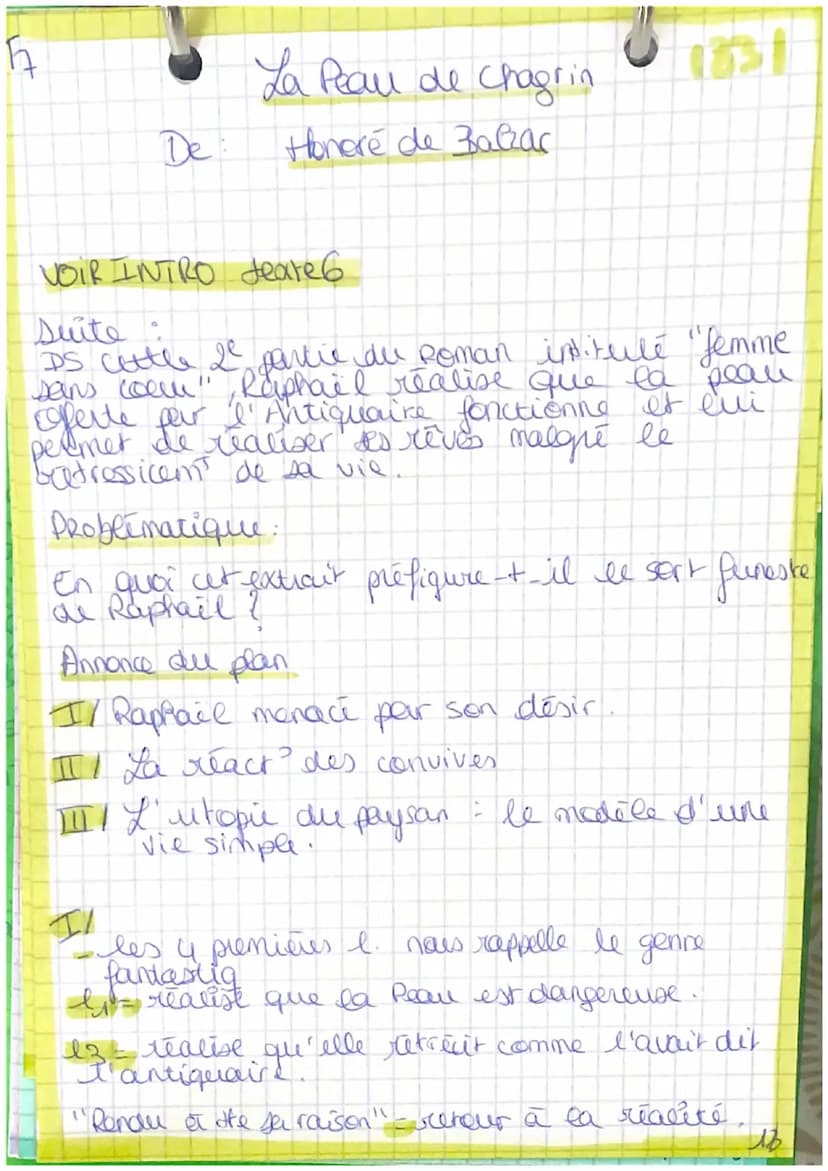 7
La Peau de Chagrin 1831
De : Honoré de Balzac
VOIR INTRO texte 6
Suite :
DS cette 2e partie du Roman intitulé "femme
sans coeur", Raphaël réalise que la peau
offerte par l'Antiquaire fonctionne et lui
permet de réaliser ses rêves malgré le
de sa vie.
Problématique :
En quoi cet extrait préfigure-t-il le sort funeste
de Raphaël ?
Annonce du plan
I/ Raphaël menacé par son désir.
II/ La réact° des convives
III/ L'utopie du paysan : le modèle d'une
vie simple.
I/
- les 4 premières l. nous rappelle le genre
fantastiq
l1 = réalise que la Peau est dangereuse.
l3 = réalise qu'elle rétrécit comme l'avait dit
l'antiquaire.
"Rendu à tte sa raison" = retour à la réalité.